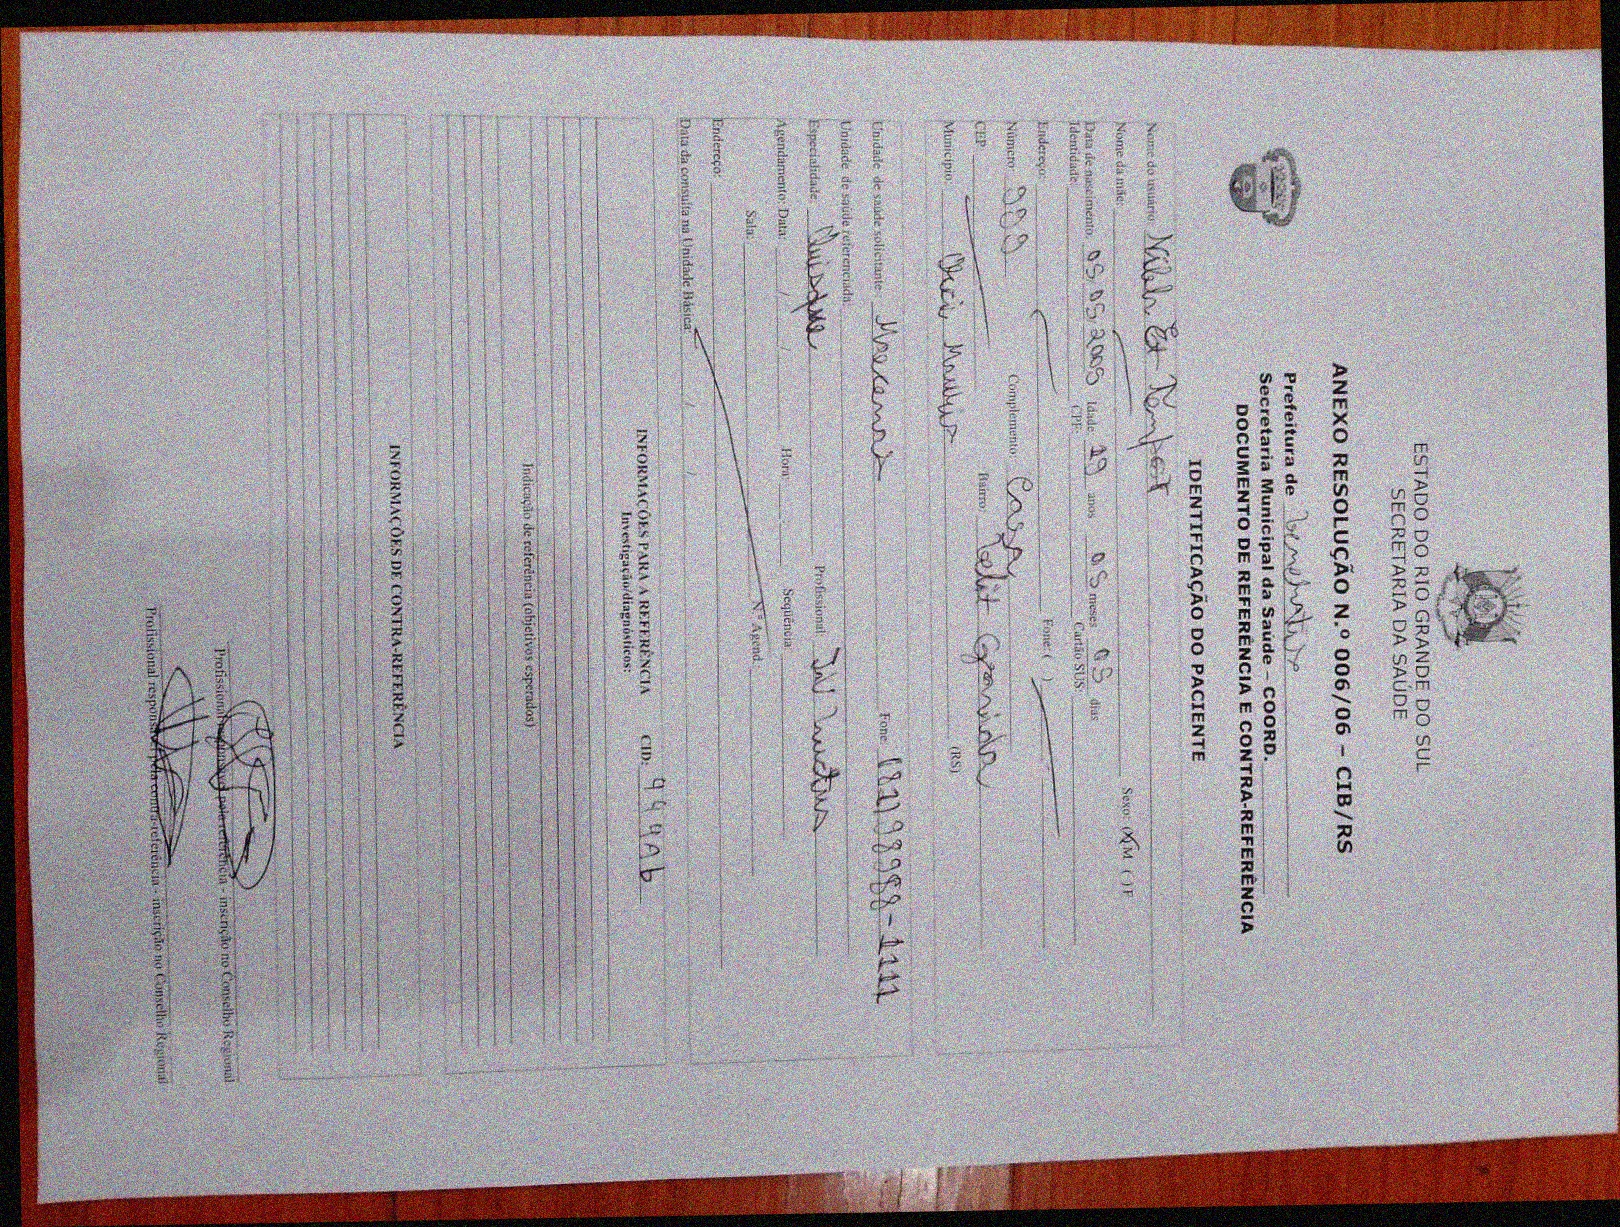 ESTADO DO RIO GRANDE DO SUL
SECRETARIA DA SAÚDE
ANEXO RESOLUÇÃO N.º 006/06 – CIB/RS
Prefeitura de
Secretaria Municipal da Saúde – COORD.
DOCUMENTO DE REFERÊNCIA E CONTRA-REFERÊNCIA
IDENTIFICAÇÃO DO PACIENTE
Nome do usuário: Et Tempor
Nome da mãe: Sexo: (X) M ( ) F
Data de nascimento: 05 05 2005 Idade: 19 anos 05 meses 05 dias
Identidade: CPF: Cartão SUS:
Endereço: Fone: ( )
Número: 999 Complemento: Casa
CEP: Bairro: Velit Gravida
Município: Orci Mauris (RS)
Unidade de saúde solicitante: Maecenas Fone: (21) 98988-1111
Unidade de saúde referenciada:
Especialidade: Quisque Profissional: Luctus
Agendamento: Data: / / Hora: : Seqüência
Sala: N.º Agend.
Endereço:
Data da consulta na Unidade Básica / /
INFORMAÇÕES PARA A REFERÊNCIA CID: 9999Ab
Investigação/diagnósticos:
Indicação de referência (objetivos esperados)
INFORMAÇÕES DE CONTRA-REFERÊNCIA
Profissional pela referência - inscrição no Conselho Regional
Profissional responsável pela contra-referência - inscrição no Conselho Regional